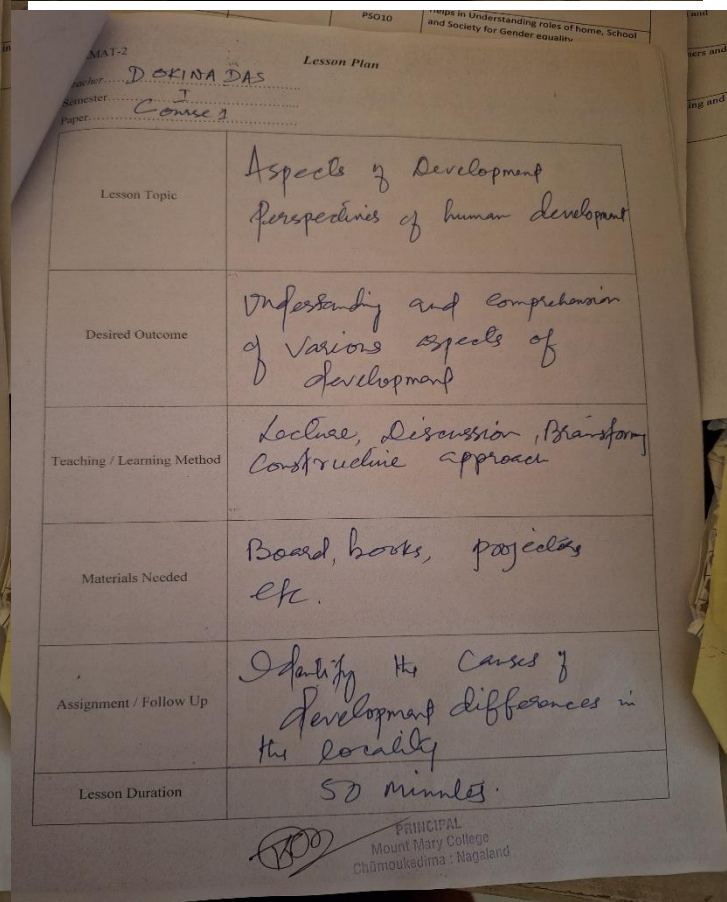 PSO10
Helps in Understanding roles of home, School
and Society for Gender equality
and
ers and
ing and
MAT-2
Lesson Plan
Teacher......DOKINA DAS
Semester......I
Paper......Course 1
Lesson Topic
Aspects of Development
Perspectives of human development
Desired Outcome
Understanding and comprehension
of various aspects of
development
Teaching / Learning Method
Lecture, Discussion, Brainstorming
Constructive approach
Materials Needed
Board, books, projectors
etc.
Assignment / Follow Up
Identify the causes of
development differences in
the locality
Lesson Duration
50 minutes.
PRINCIPAL
Mount Mary College
Chümoukedima : Nagaland